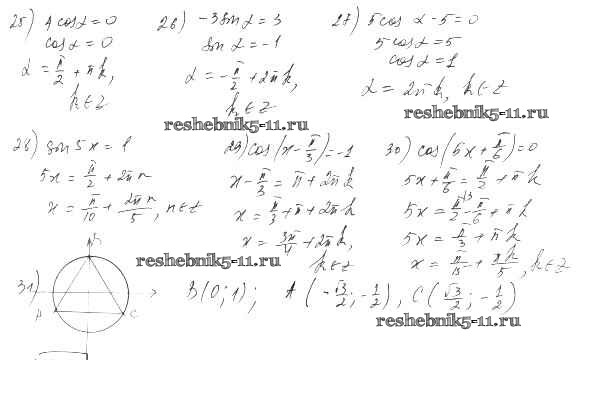 25) 4 cos α = 0
cos α = 0
α = π/2 + πk,
k ∈ z
26) -3 sin α = 3
sin α = -1
α = -π/2 + 2πk,
k ∈ z
27) 5 cos α - 5 = 0
5 cos α = 5
cos α = 1
α = 2πk, k ∈ z
reshebnik5-11.ru
reshebnik5-11.ru
28) sin 5x = 1
5x = π/2 + 2πn
x = π/10 + 2πn/5, n ∈ z
29) cos(x - π/3) = -1
x - π/3 = π + 2πk
x = π/3 + π + 2πk
x = 3π/4 + 2πk,
k ∈ z
30) cos(5x + π/6) = 0
5x + π/6 = π/2 + πk
5x = π/2\3 - π/6 + πk
5x = π/3 + πk
x = π/15 + πk/5, k ∈ z
reshebnik5-11.ru
31)
A
C
B(0; 1); A(-√3/2; -1/2), C(√3/2; -1/2)
reshebnik5-11.ru